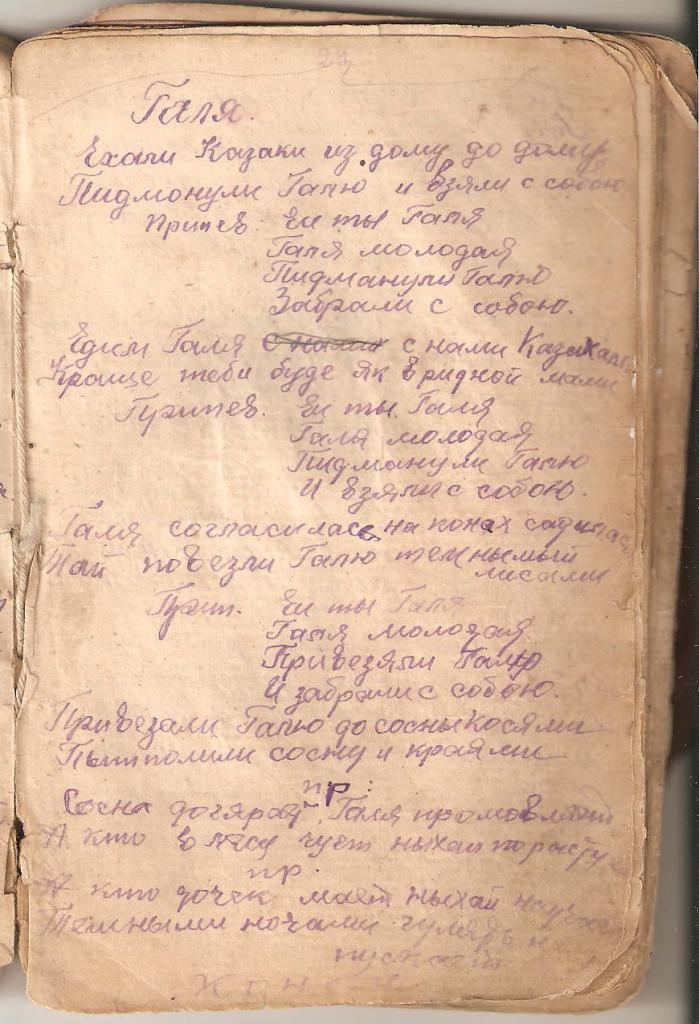 23
Галя.
Ехали Казаки из дому до дому
Пидмонули Галю и взяли с собою
Припев. Еи ты Галя
Галя молодая
Пидманули Галю
Забрали с собою.
Едем Галя с нами Казаками
Краще теби буде як в ридной мами
Припев. Еи ты Галя
Галя молодая
Пидманули Галю
И взяли с собою.
Галя согласилась на конах садилась
Тай повезли Галю темнымый
лисами
Прип. Еи ты Галя
Галя молодая
Привезяли Галю
И забрали с собою.
Привезали Галю до сосны косями
сосну и краями
пр.
Сосна догярает, Галя промовляет
А кто в лясу чует ныхай
пр.
А кто дочек мает ныхай
Темными ночами гулядь н
пускает
Конец